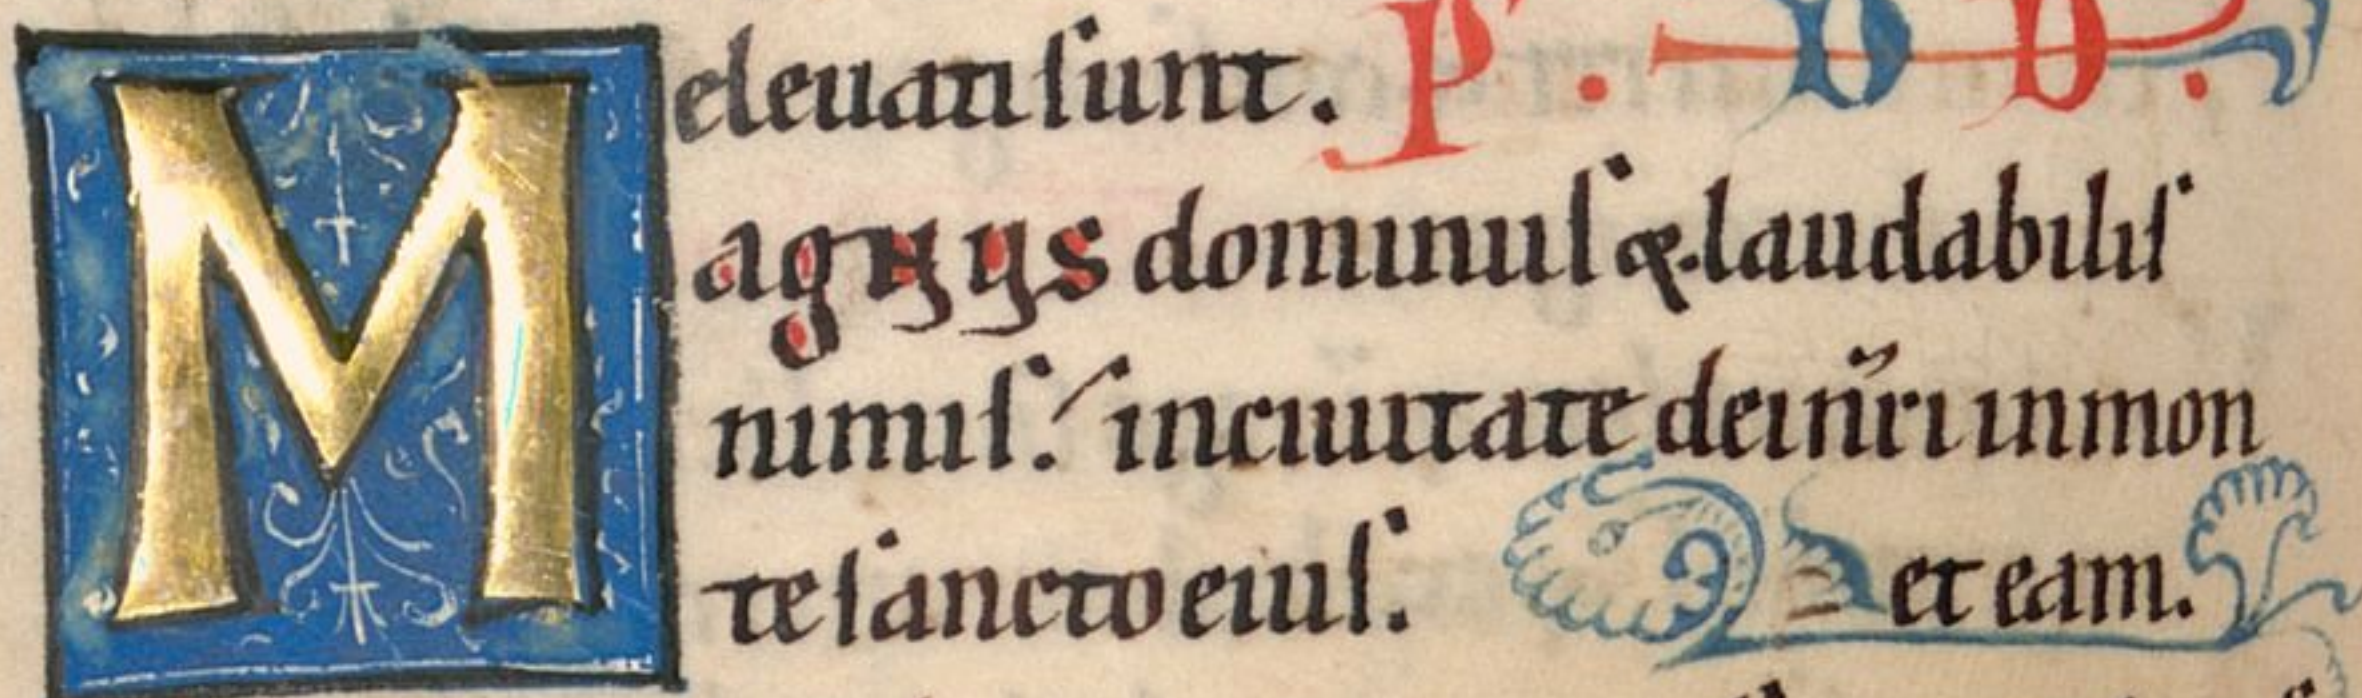 eleuati sunt. P. D D.
Magnus dominus & laudabilis
nimis. in ciuitate dei nr̃i in mon
te sancto eius. et eam.